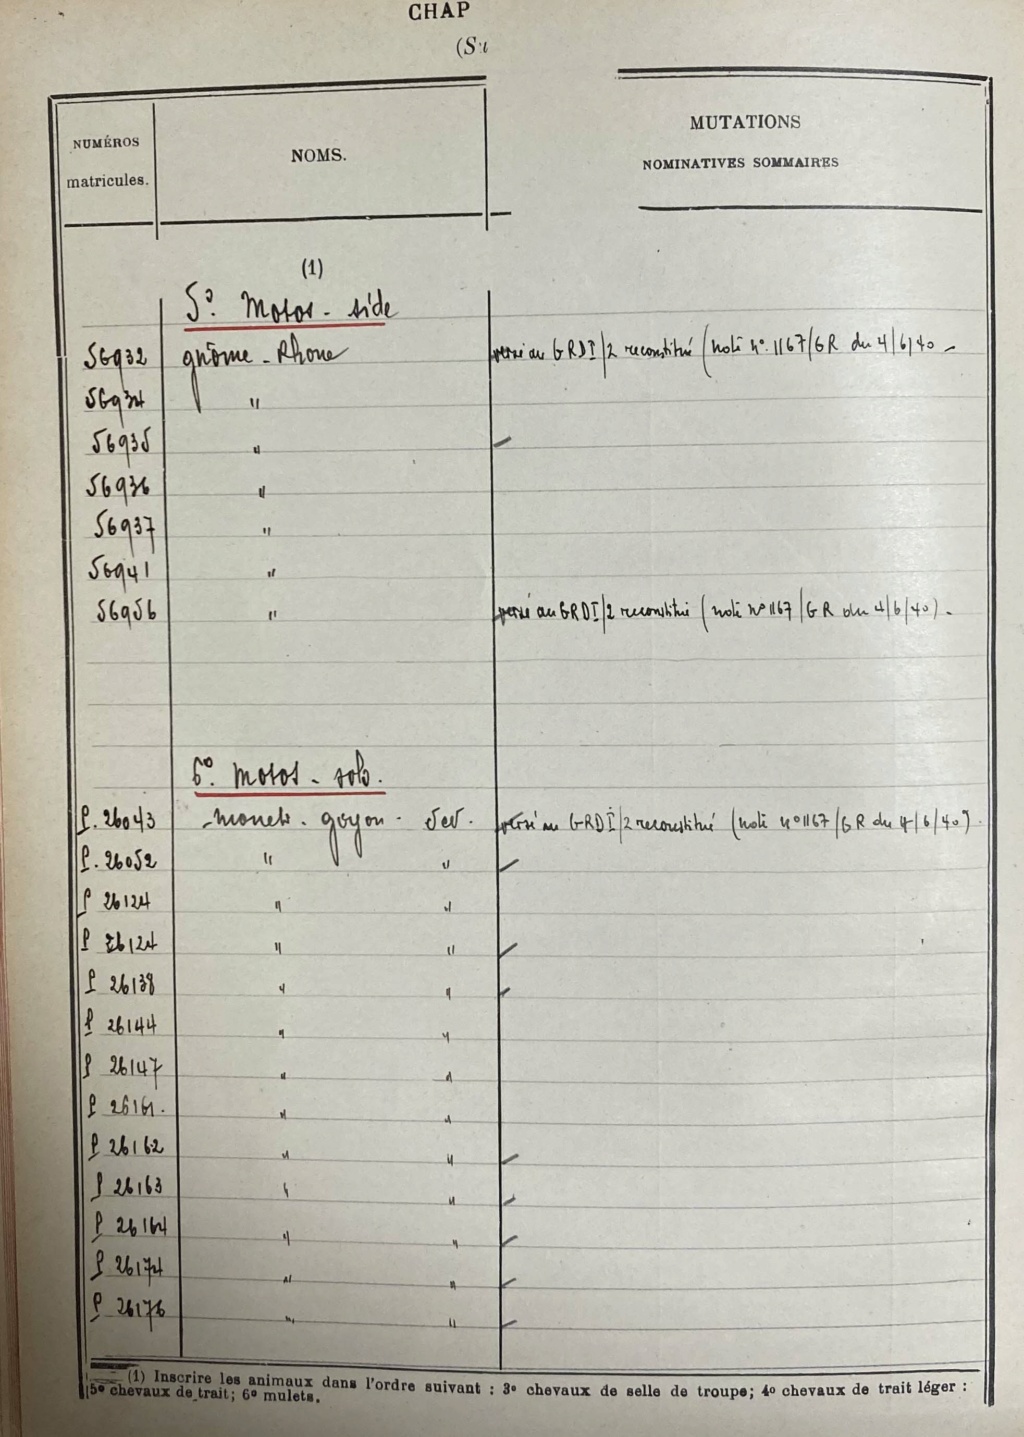 CHAP
(Su
NUMÉROS
matricules.
NOMS.
MUTATIONS
NOMINATIVES SOMMAIRES
(1)
5°. Motos - side
56932 gnôme - Rhone versé au GRDI/2 reconstitué (note n°. 1167/GR du 4/6/40 -
56934 "
56935 "
56936 "
56937 "
56941 "
56956 " versé au GRDI/2 reconstitué (note n° 1167/GR du 4/6/40). -
6°. Motos - solo.
P. 26043 - monet - goyon - versé au GRDI/2 reconstitué (note n° 1167/GR du 4/6/40).
P. 26052 " "
P 26124 " "
P 26124 " "
P 26138 " "
P 26144 " "
P 26147 " "
P 26161. " "
P 26162 " "
P 26163 " "
P 26164 " "
P 26174 " "
P 26176 " "
(1) Inscrire les animaux dans l'ordre suivant : 3° chevaux de selle de troupe; 4° chevaux de trait léger :
5° chevaux de trait; 6° mulets.